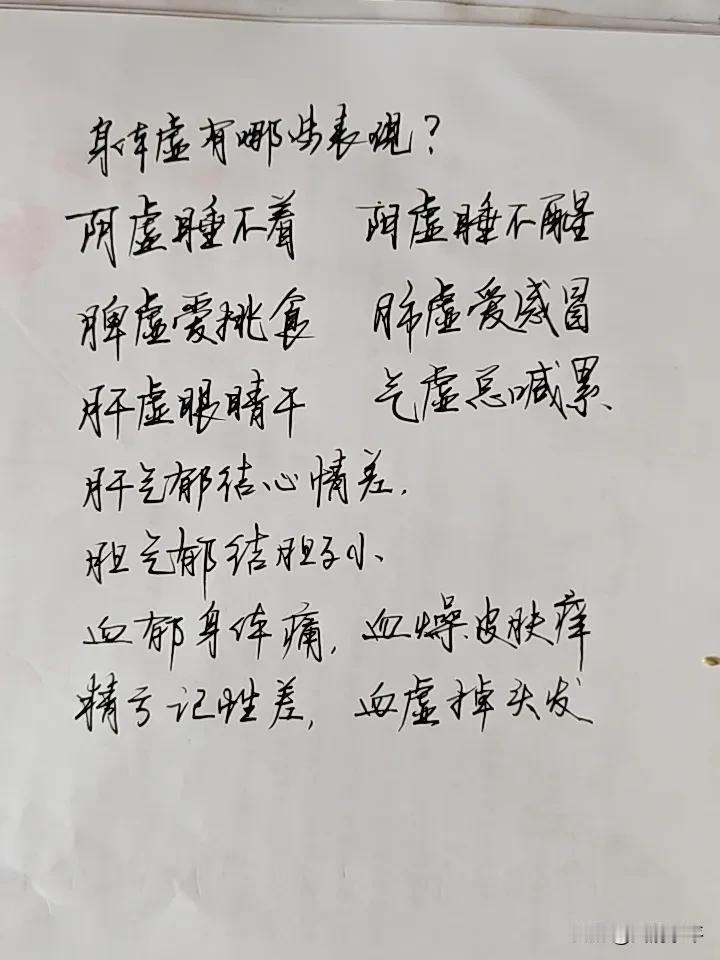 身体虚有哪些表现?
阴虚睡不着 阳虚睡不醒
脾虚爱挑食 肺虚爱感冒
肝虚眼睛干 气虚总喊累
肝气郁结心情差.
胆气郁结胆子小、
血郁身体痛, 血燥皮肤痒
精亏记性差, 血虚掉头发